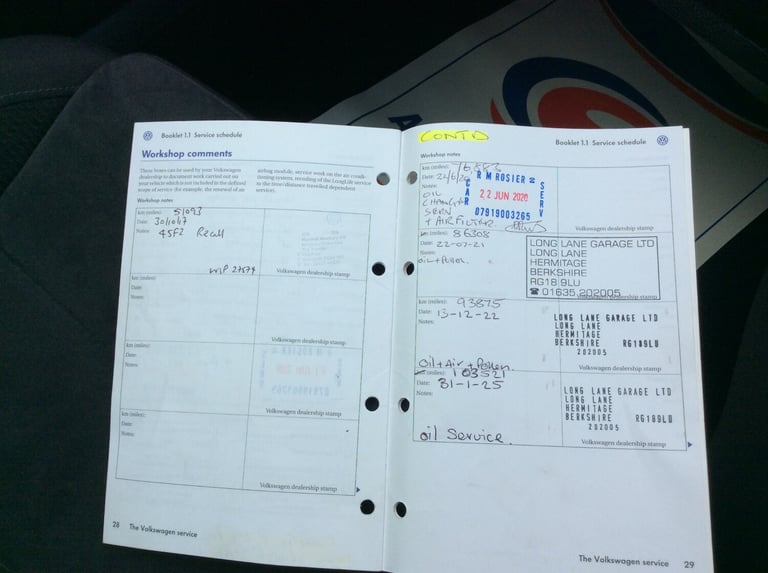 Booklet 1.1 Service schedule
Workshop comments
These boxes can be used by your Volkswagen
dealership to document work carried out on
your vehicle which is not included in the defined
scope of service (for example, the renewal of an
airbag module, service work on the air condi-
tioning system, recoding of the LongLife service
to the time/distance travelled dependent
service).
Workshop notes
km (miles): 51093
Date: 30/10/17
Notes: 45F2 Recall
WIP 27574
Volkswagen dealership stamp
km (miles):
Date:
Notes:
Volkswagen dealership stamp
km (miles):
Date:
Notes:
Volkswagen dealership stamp
km (miles):
Date:
Notes:
Volkswagen dealership stamp
28 The Volkswagen service
CONTD
Booklet 1.1 Service schedule
Workshop notes
km (miles): 76883
Date: 22/6/20
Notes:
OIL
CHANGE
SERV
+ AIR FILTER.
R M ROSIER
CAR
22 JUN 2020
SERV
07919003265
Volkswagen dealership stamp
km (miles): 86308
Date: 22-07-21
Notes:
oil + Pollen.
LONG LANE GARAGE LTD
LONG LANE
HERMITAGE
BERKSHIRE
RG18 9LU
☎ 01635 202005
Volkswagen dealership stamp
km (miles): 93875
Date: 13-12-22
Notes:
Oil + Air + Pollen.
LONG LANE GARAGE LTD
LONG LANE
HERMITAGE
BERKSHIRE RG189LU
202005
km (miles): 103521
Date: 31-1-25
Notes:
oil Service.
LONG LANE GARAGE LTD
LONG LANE
HERMITAGE
BERKSHIRE RG189LU
202005
Volkswagen dealership stamp
The Volkswagen service 29